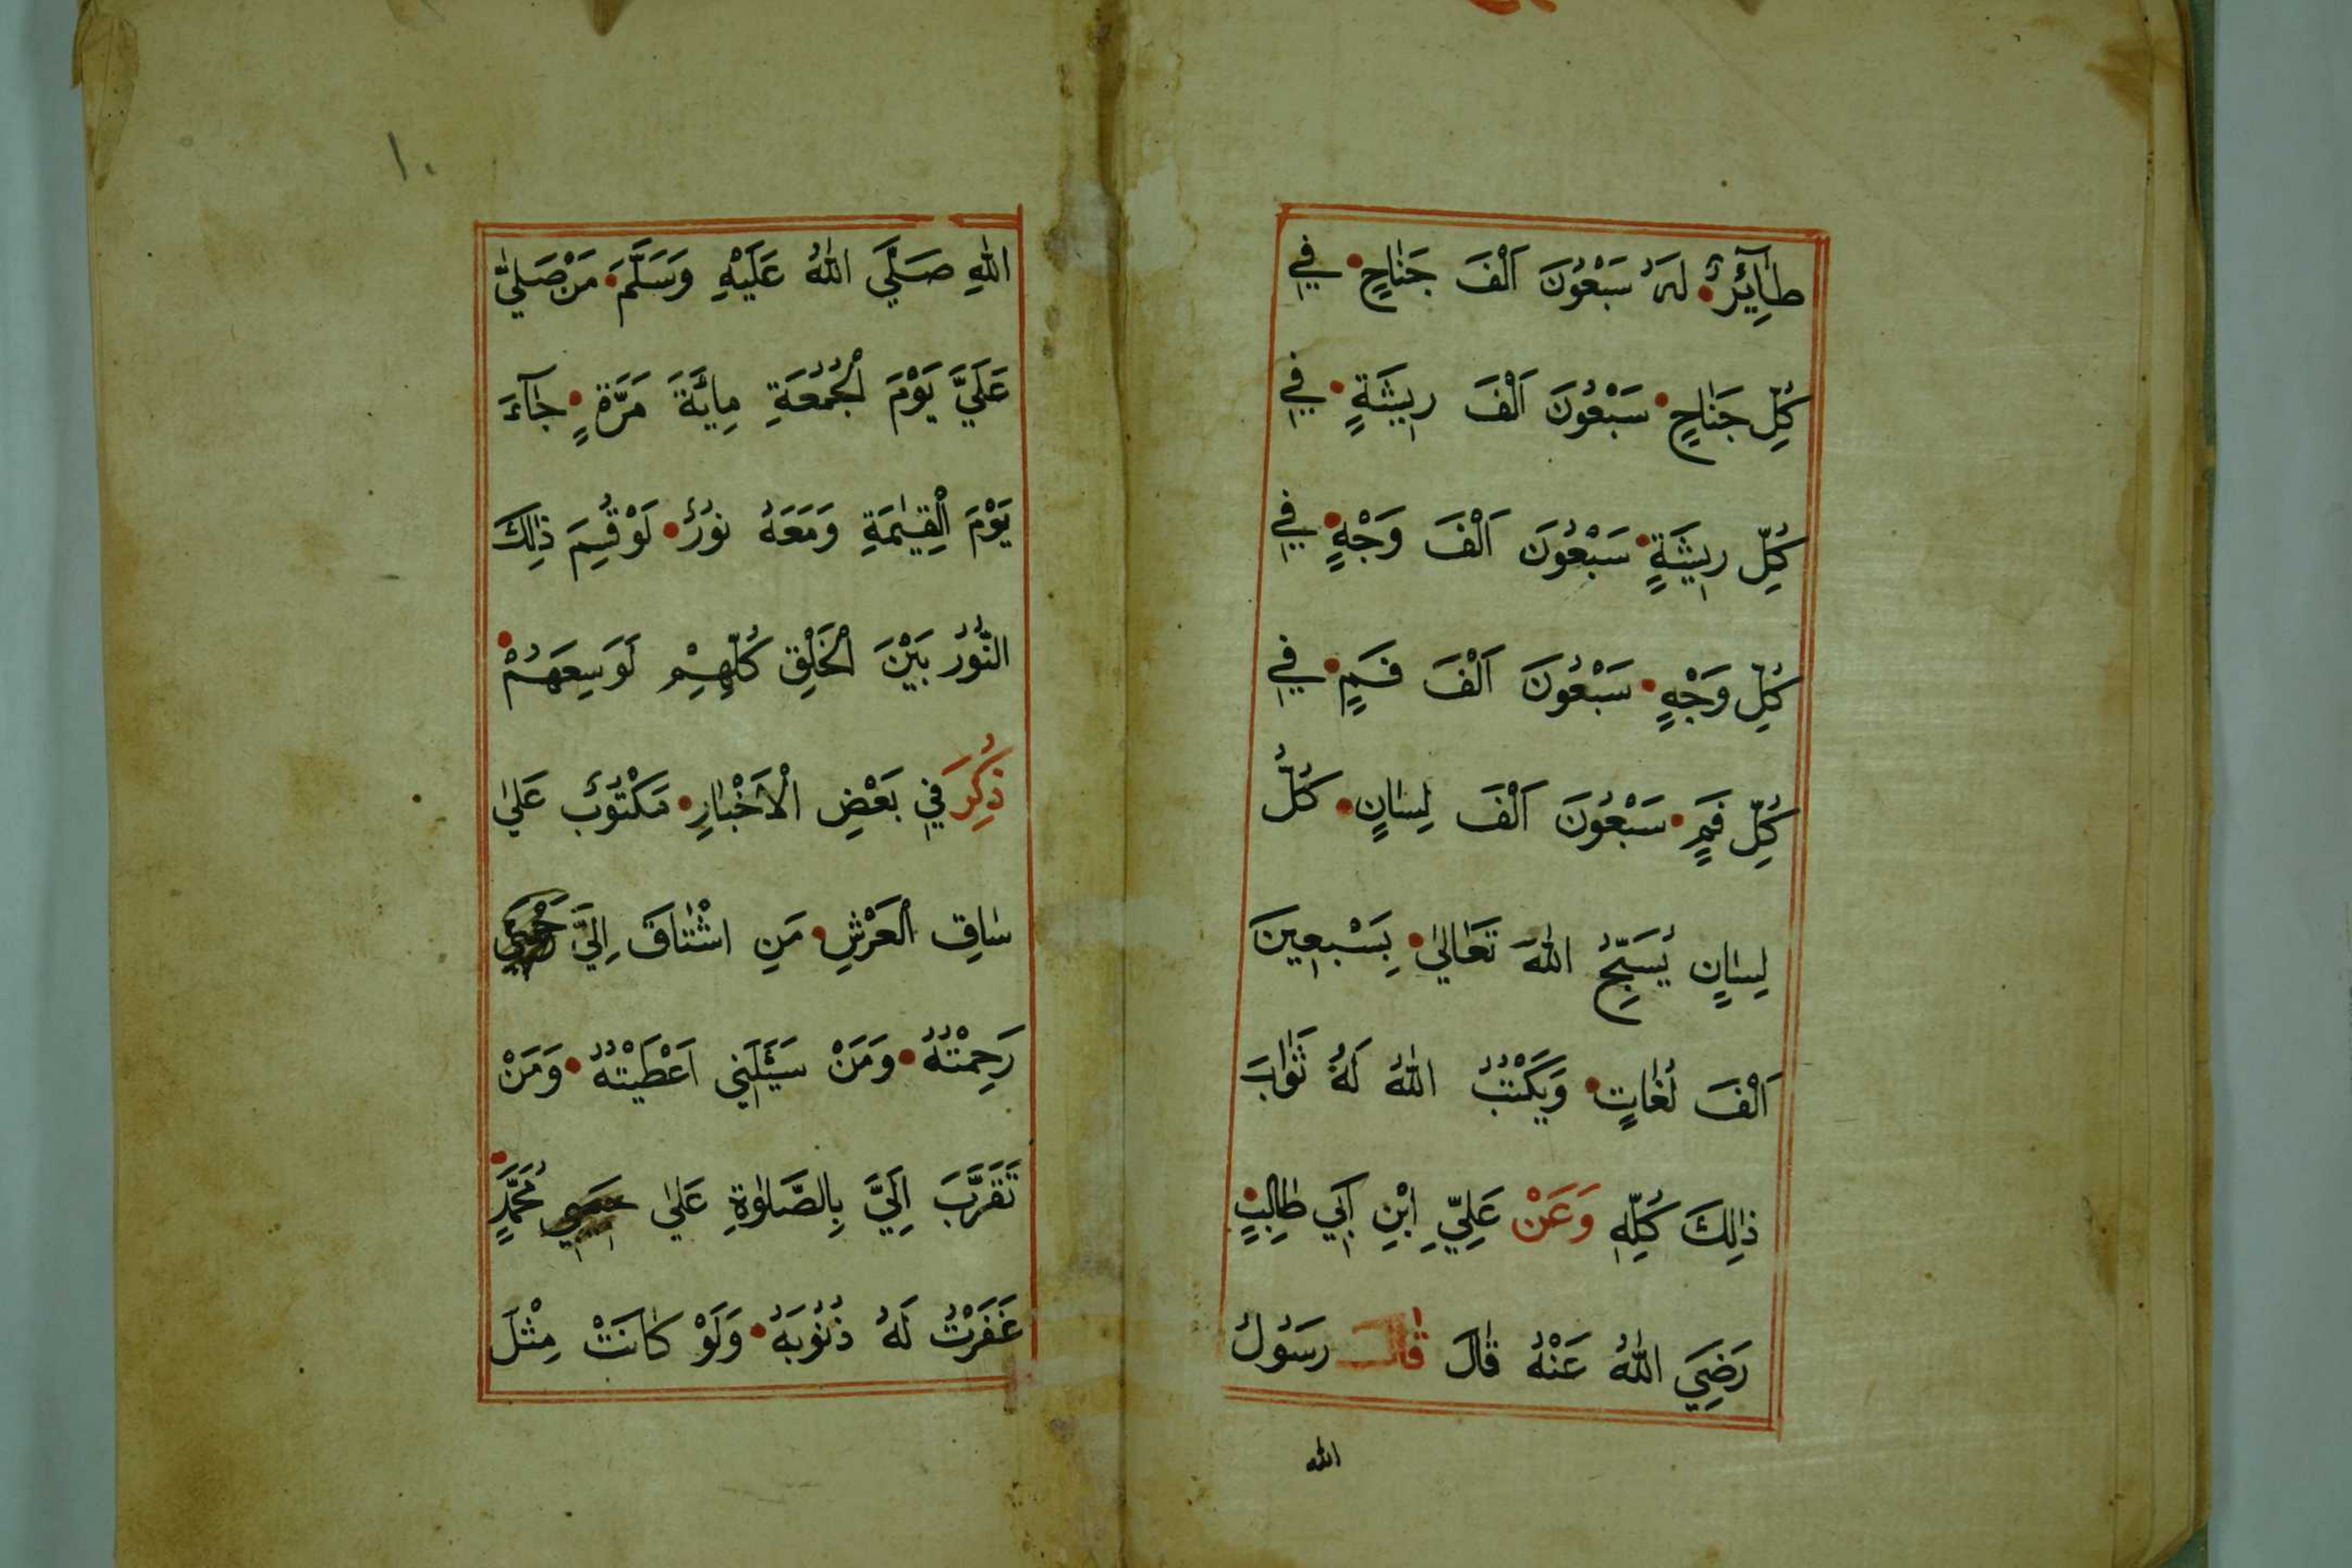 طَآئِرٌ لَهُ سَبْعُونَ اَلْفَ جَنَاحٍ فِي
كُلِّ جَنَاحٍ سَبْعُونَ اَلْفَ رِيشَةٍ فِي
كُلِّ رِيشَةٍ سَبْعُونَ اَلْفَ وَجْهٍ فِي
كُلِّ وَجْهٍ سَبْعُونَ اَلْفَ فَمٍ فِي
كُلِّ فَمٍ سَبْعُونَ اَلْفَ لِسَانٍ كُلُّ
لِسَانٍ يُسَبِّحُ اللهَ تَعَالٰي بِسَبْعِينَ
اَلْفَ لُغَاتٍ وَيَكْتُبُ اللهُ لَهُ ثَوَابَ
ذٰلِكَ كُلِّهِ وَعَنْ عَلِيِّ ابْنِ اَبِي طَالِبٍ
رَضِيَ اللهُ عَنْهُ قَالَ قَالَ رَسُولُ
الله
١٠
اللهِ صَلَّي اللهُ عَلَيْهِ وَسَلَّمَ مَنْ صَلّٰي
عَلَيَّ يَوْمَ الْجُمُعَةِ مِايَّةَ مَرَّةٍ جَآءَ
يَوْمَ الْقِيٰمَةِ وَمَعَهُ نُورٌ لَوْ قُسِمَ ذٰلِكَ
النُّورُ بَيْنَ الْخَلْقِ كُلِّهِمْ لَوَسِعَهُمْ
ذُكِرَ فِي بَعْضِ الْاَخْبَارِ مَكْتُوبٌ عَلٰي
سَاقِ الْعَرْشِ مَنِ اشْتَاقَ اِلَيَّ
رَحِمْتُهُ وَمَنْ سَئَلَنِي اَعْطَيْتُهُ وَمَنْ
تَقَرَّبَ اِلَيَّ بِالصَّلٰوةِ عَلٰي مُحَمَّدٍ
غَفَرْتُ لَهُ ذُنُوبَهُ وَلَوْ كَانَتْ مِثْلَ